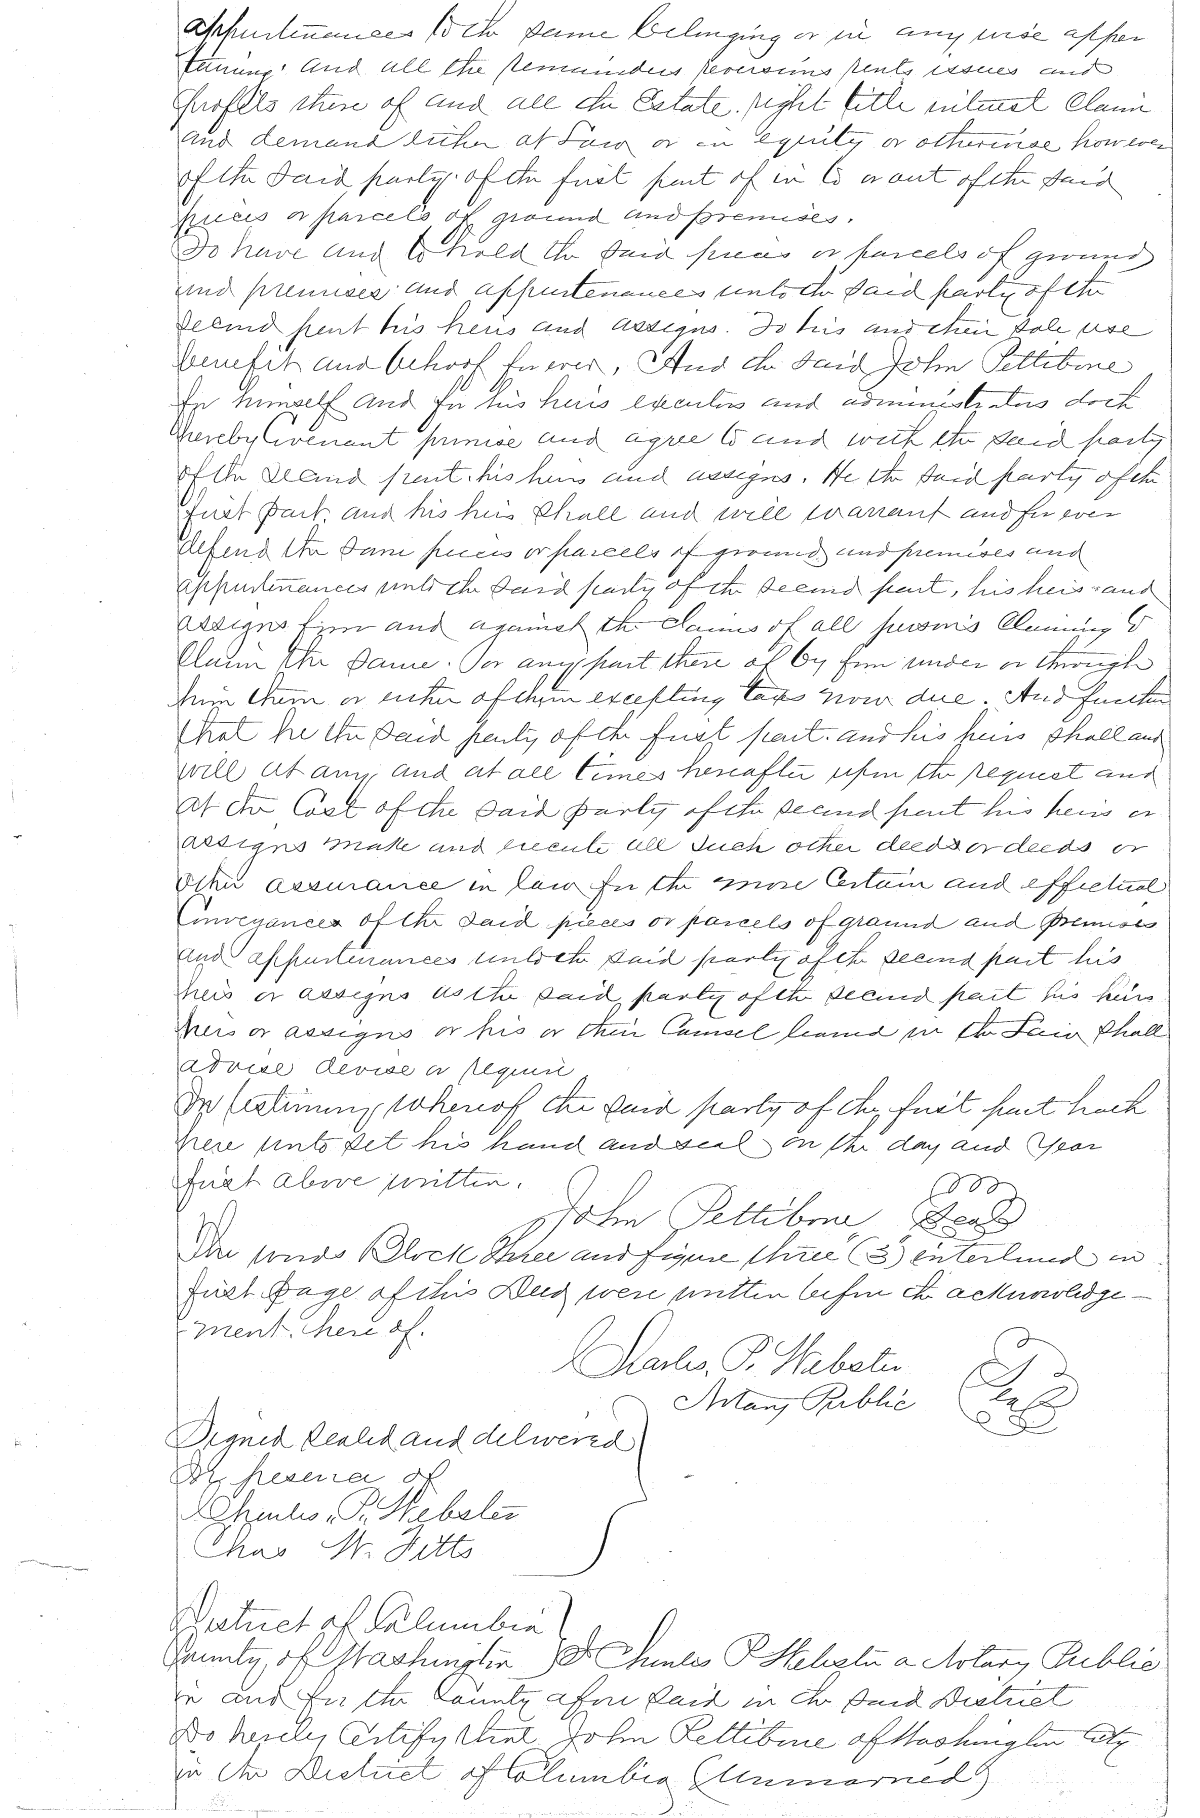 appurtenances to the same belonging or in any wise apper
taining. and all the remainders reversions rents issues and
profits there of and all the Estate. right title interest Claim
and demand either at Law or in equity or otherwise however
of the Said party. of the first part of in to or out of the Said
pieces or parcels of ground and premises.
To have and to hold the Said pieces or parcels of ground
and premises and appurtenances unto the Said party of the
Second part his heirs and assigns. To his and their Sole use
benefit and behoof for ever. And the Said John Pettibone
for himself and for his heirs executors and administrators doth
hereby Covenant promise and agree to and with the Said party
of the Second part. his heirs and assigns. He the Said party of the
first part. and his heirs Shall and will warrant and for ever
defend the Same pieces or parcels of ground and premises and
appurtenances unto the Said party of the Second part, his heirs and
assigns from and against the Claims of all persons Claiming to
Claim the Same. or any part there of by from under or through
him them or either of them excepting taxes now due. And further
that he the Said party of the first part. and his heirs Shall and
will at any and at all times hereafter upon the request and
at the Cost of the Said party of the Second part his heirs or
assigns make and execute all Such other deeds or deeds or
other assurance in law for the more Certain and effectual
Conveyances of the Said pieces or parcels of ground and premises
and appurtenances unto the Said party of the second part his
heirs or assigns as the Said party of the Second part his heirs
heirs or assigns or his or their Counsel learned in the Law Shall
advise devise or require
In testimony whereof the Said party of the first part hath
here unto Set his hand and seal on the day and Year
first above written.
John Pettibone Seal
The words Block Three and figure three "(3)" interlined in
first page of this Deed were written before the acknowledge-
ment. here of.
Charles, P. Webster
Notary Public Seal
Signed Sealed and delivered
In presence of
Charles. P. Webster
Chas W. Fitts
District of Columbia
County of Washington I Charles P Webster a Notary Public
in and for the County afore Said in the Said District
Do hereby Certify that John Pettibone of Washington City
in the District of Columbia (Unmarried)